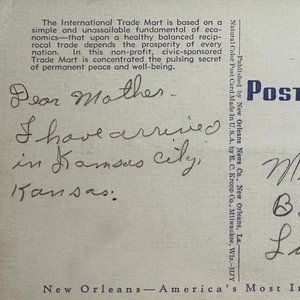 The International Trade Mart is based on a
simple and unassailable fundamental of eco-
nomics—that upon a healthy balanced recip-
rocal trade depends the prosperity of every
nation. In this non-profit, civic-sponsored
Trade Mart is concentrated the pulsing secret
of permanent peace and well-being.
Dear Mother-
I have arrived
in Kansas City,
Kansas.
Published by New Orleans News Co. New Orleans, La.
Natural Color Post Card Made In U.S.A. by E. C. Kropp Co., Milwaukee, Wis.
POST
M
B
New Orleans—America's Most In